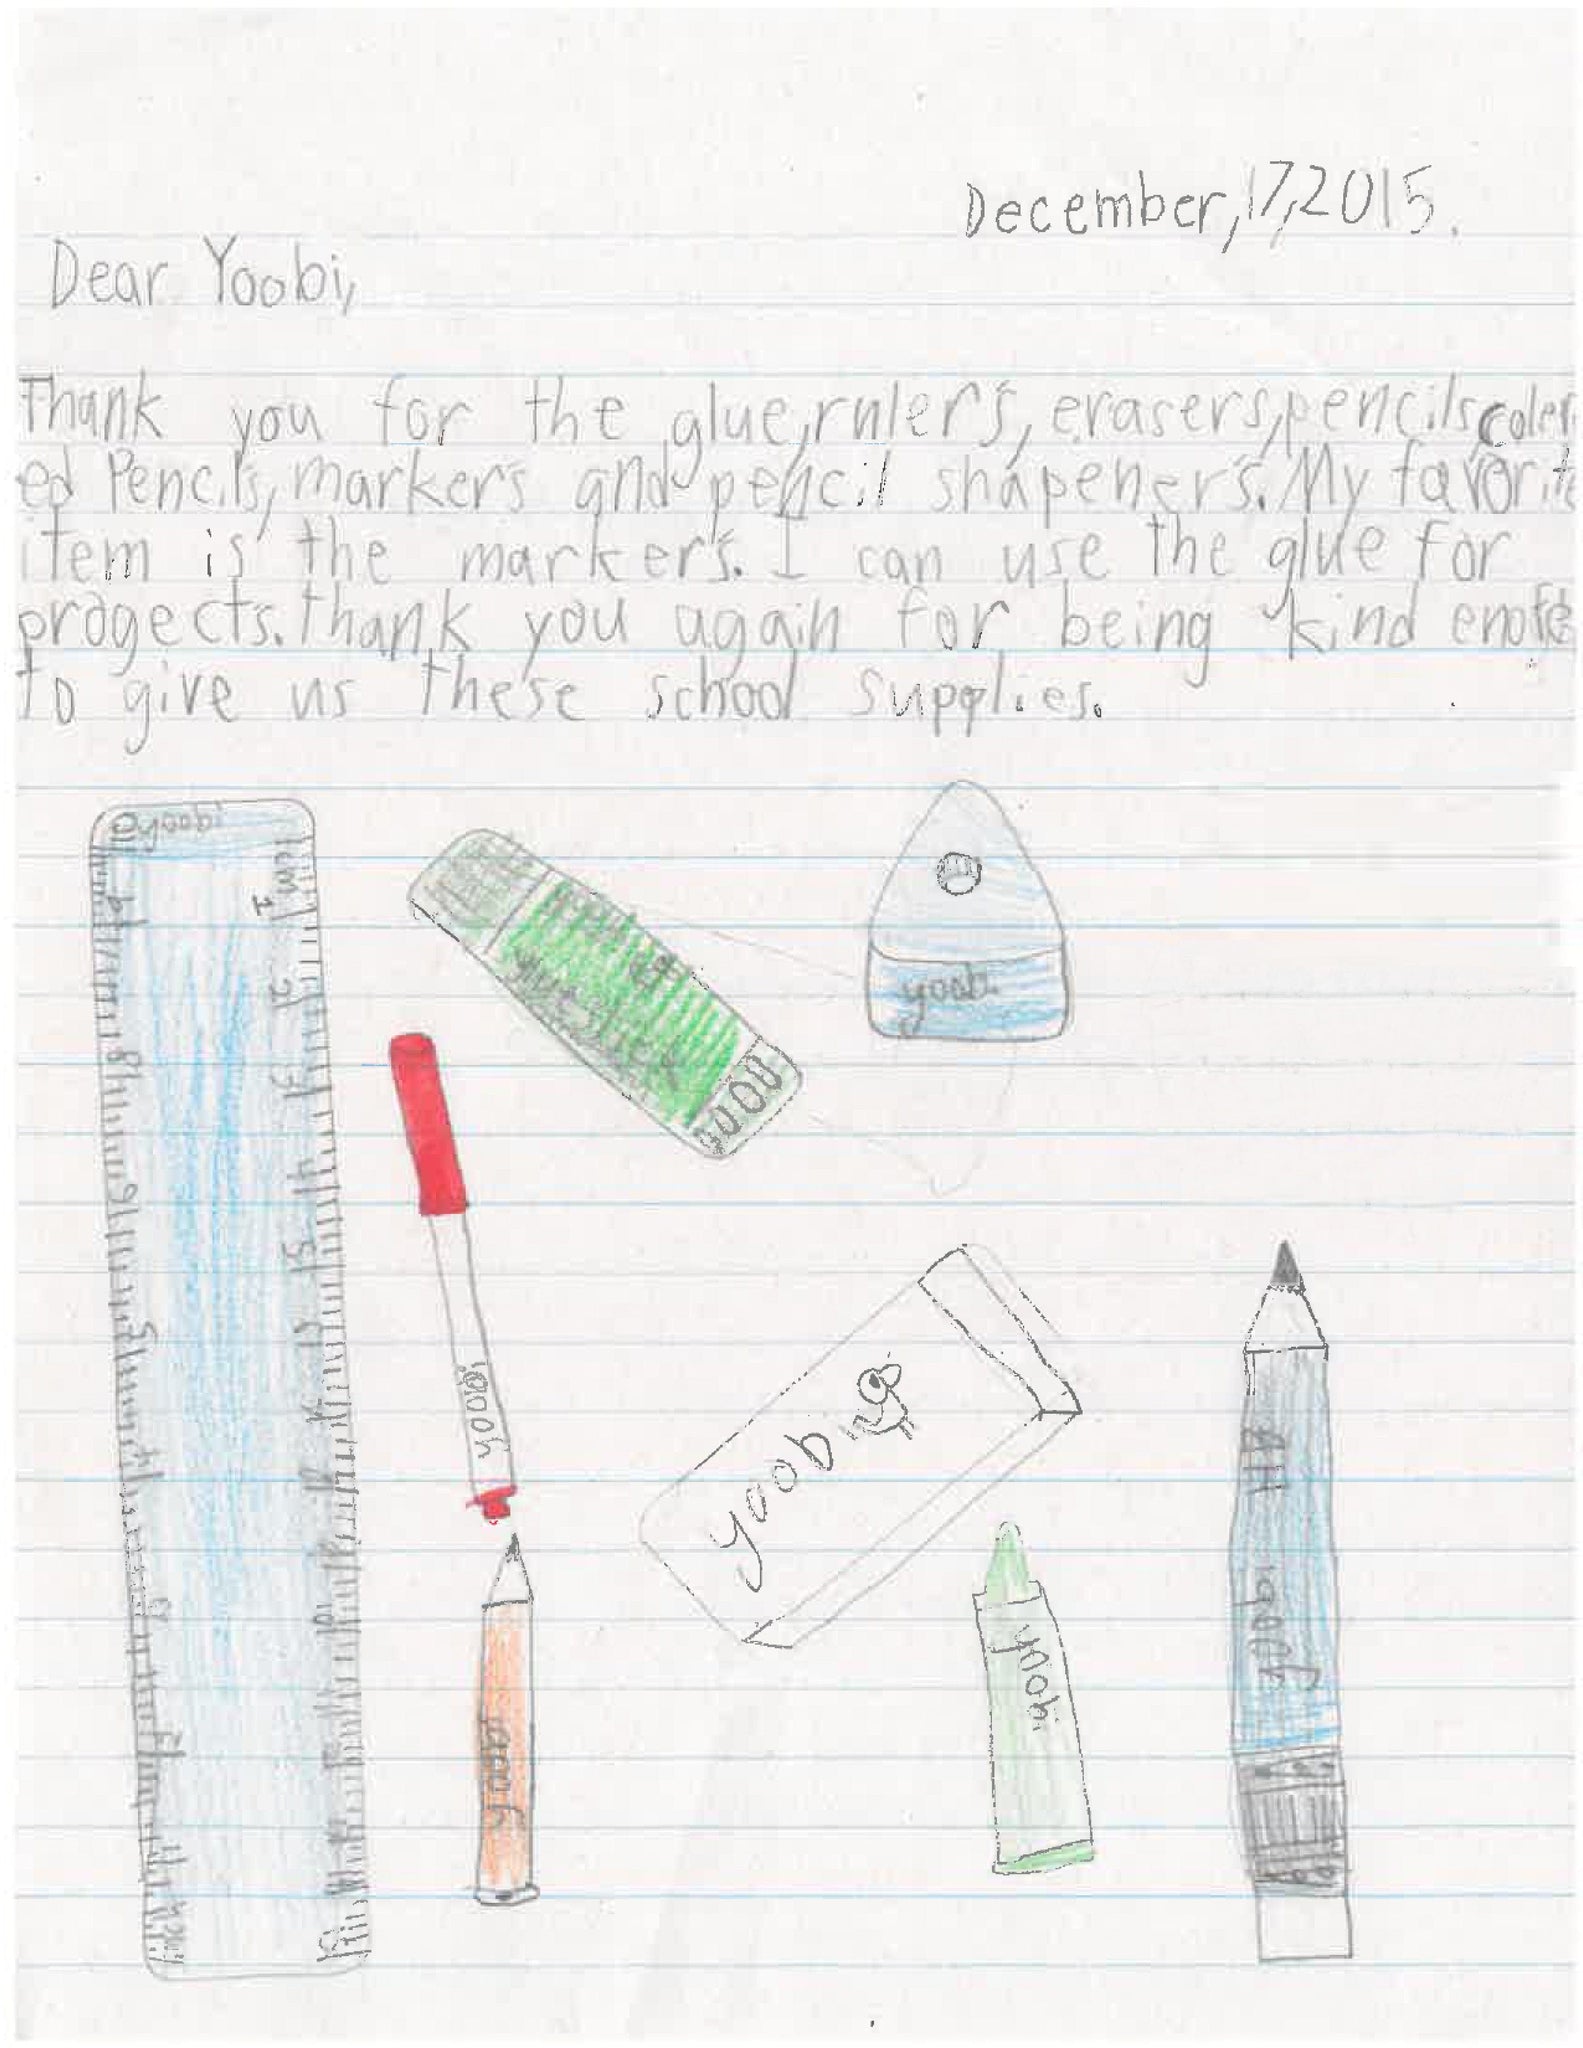 December,17,2015.
Dear Yoobi,
Thank you for the glue,ruler's, erasers,pencils,coler-
ed Pencil's, marker's and pencil shapener's. My favorite
item is the marker's. I can use the glue for
progects. Thank you again for being kind
to give us these school supplies.
yoobi
1cm
1
2
3
4
5
glue stick
yoobi
yoobi
yoobi
yoobi
yoobi
yoobi
#2
yoobi
inch